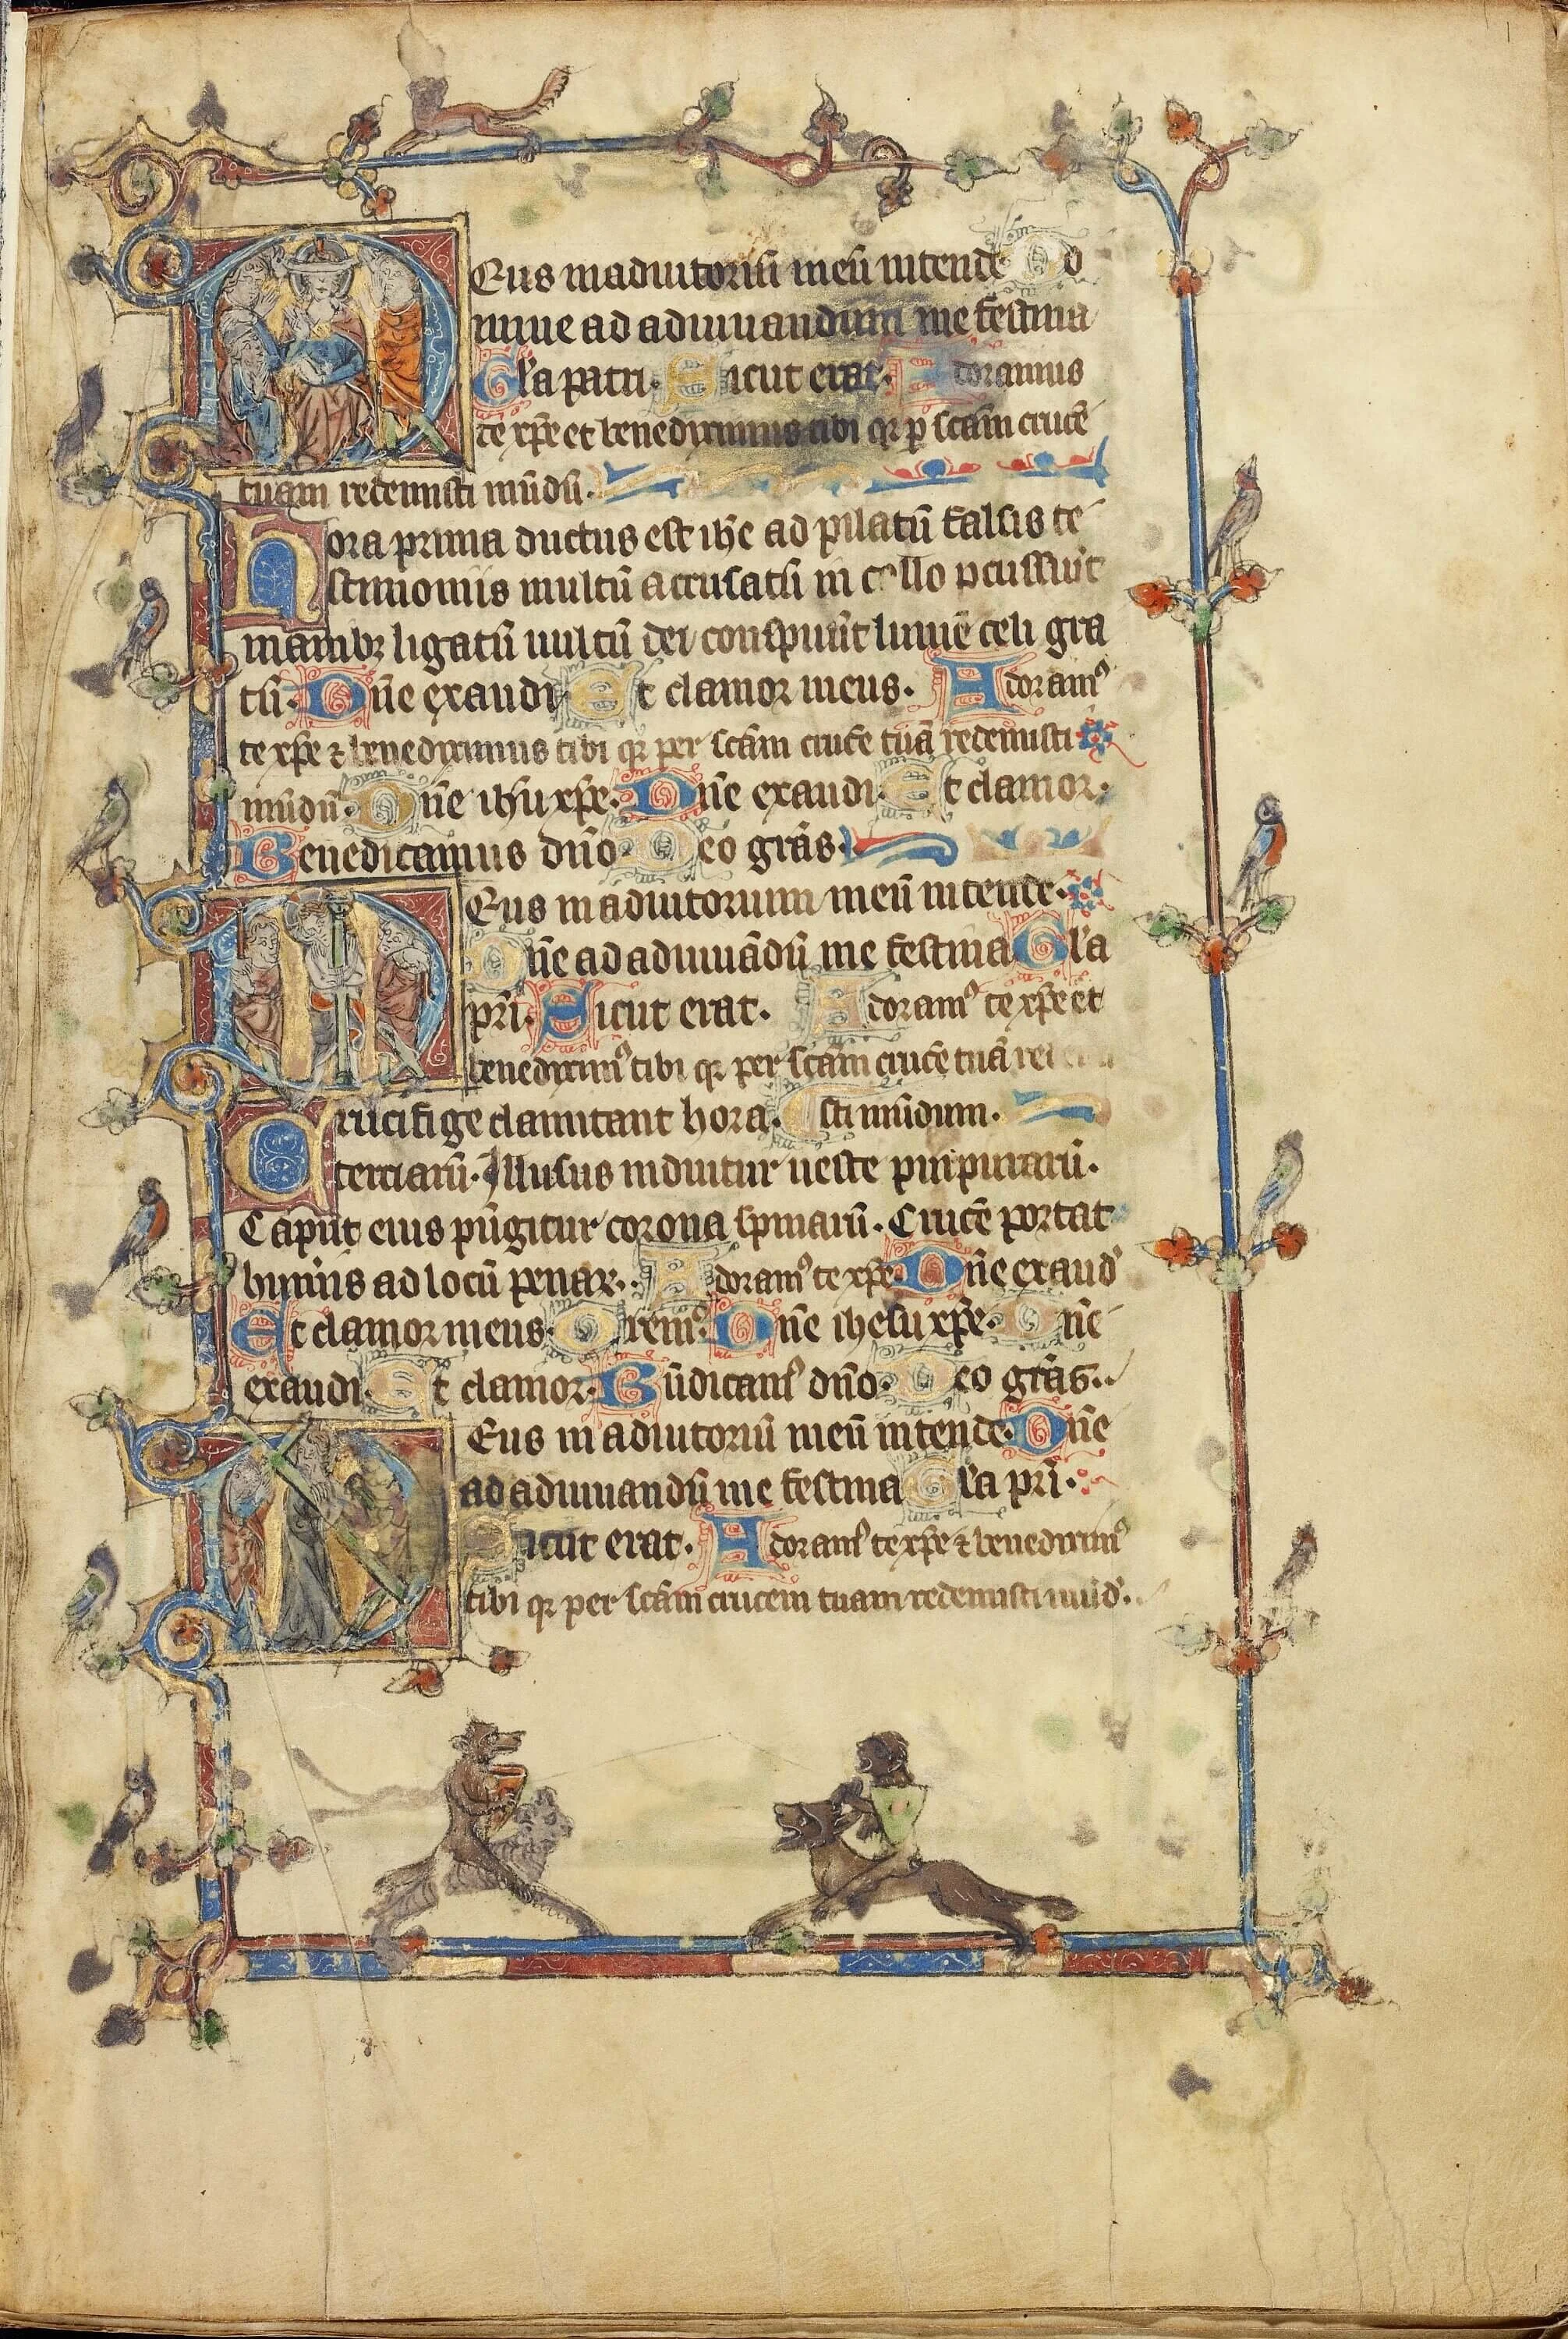 Deus in adiutoriū meū intende Do
mine ad adiuuandum me festina
Gl'a patri. Sicut erat. Adoramus
te xp̄e et benediximus tibi qr p̱ scām crucē
tuam redemisti mūdū.
Hora prima ductus est ih̄c ad pilatū falsis te
stimoniis multū accusatū in collo ꝑcussiūt
manibꝫ ligatū uultū dei conspuūt lumē celi gra
tū. Dn̄e exaudi Et clamor meus. Adoramꝰ
te xp̄e ⁊ benediximus tibi qr per scām crucē tuā redemisti
mūdū. Dn̄e ihū xp̄e. Dn̄e exaudi. Et clamor.
Benedicamus dn̄o. Deo grās.
Deus in adiutorium meū intende.
Dn̄e ad adiuuādū me festina Gl'a
pr̄i. Sicut erat. Adoramꝰ te xp̄e et
benediximꝰ tibi qr per scām crucē tuā redemi
Crucifige clamitant hora. sti mūdum.
terciarū. Illusus induitur ueste purpurarū.
Caput eius pūgitur corona spinarū. Crucē portat
humīs ad locū penaꝝ. Adoramꝰ te xp̄e. Dn̄e exaud'
Et clamor meus. Oremꝰ. Dn̄e ihesu xp̄e. Dn̄e
exaudi. Et clamor. Bn̄dicamꝰ dn̄o. Deo grās.
Deus in adiutoriū meū intende. Dn̄e
ad adiuuandū me festina Gl'a pr̄i.
Sicut erat. Adoramꝰ te xp̄e ⁊ benediximꝰ
tibi qr per scām crucem tuam redemisti mūd'.